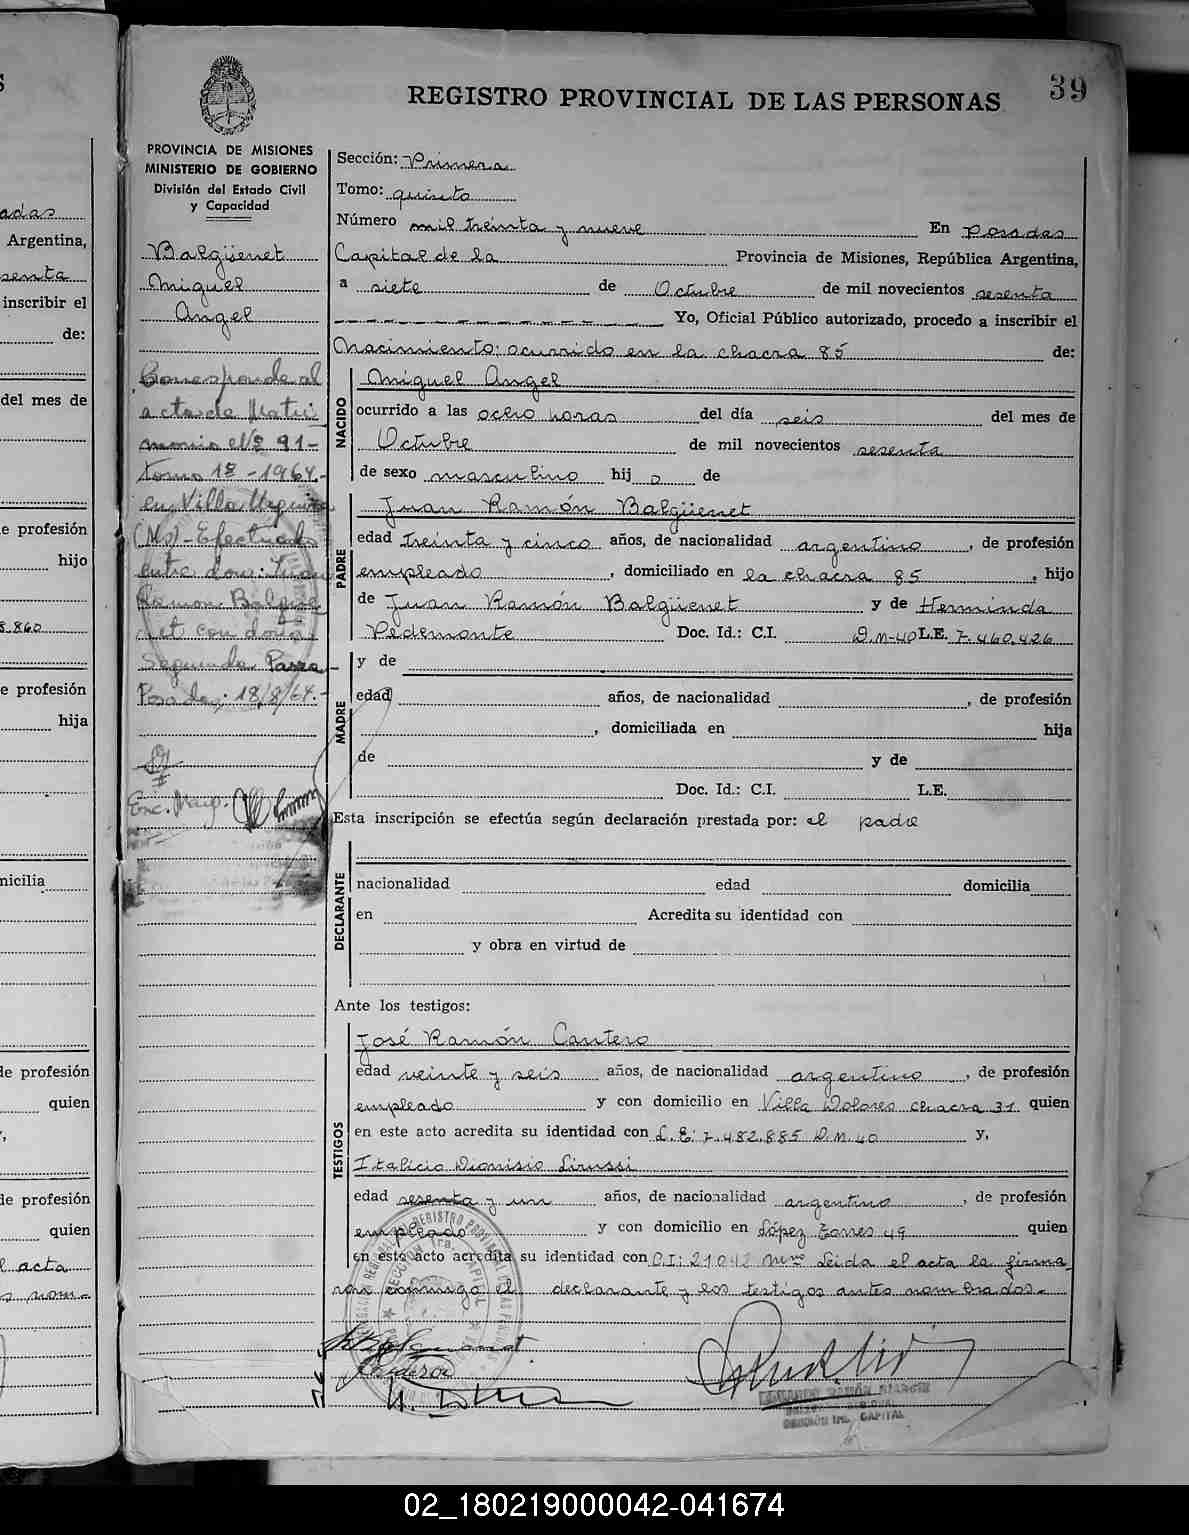 39
REGISTRO PROVINCIAL DE LAS PERSONAS
PROVINCIA DE MISIONES
MINISTERIO DE GOBIERNO
División del Estado Civil
y Capacidad
Balgüenet
Miguel
Angel
Corresponde al
acta de Matri
monio Nº 91-
tomo 1º - 1964.-
en Villa Urquiza
(Ms) - Efectuado
entre dons: Juan
Ramon Balgüe
net con doña
Segunda Parra
Posadas: 18/8/64.-
Sección: Primera
Tomo: quinto
Número mil treinta y nueve En Posadas
Capital de la Provincia de Misiones, República Argentina,
a siete de Octubre de mil novecientos sesenta
Yo, Oficial Público autorizado, procedo a inscribir el
Nacimiento: ocurrido en la chacra 85 de:
NACIDO
Miguel Angel
ocurrido a las ocho horas del día seis del mes de
Octubre de mil novecientos sesenta
de sexo masculino hij o de
PADRE
Juan Ramón Balgüenet
edad treinta y cinco años, de nacionalidad argentino, de profesión
empleado, domiciliado en la chacra 85, hijo
de Juan Ramón Balgüenet y de Herminda
Pedemonte Doc. Id.: C.I. D.M-40 L.E. 7.460.426
MADRE
y de
edad años, de nacionalidad , de profesión
, domiciliada en hija
de y de
Doc. Id.: C.I. L.E.
Esta inscripción se efectúa según declaración prestada por: el padre
DECLARANTE
nacionalidad edad domicilia
en Acredita su identidad con
y obra en virtud de
Ante los testigos:
TESTIGOS
José Ramón Cantero
edad veinte y seis años, de nacionalidad argentino, de profesión
empleado y con domicilio en Villa Dolores chacra 31 quien
en este acto acredita su identidad con L.E: 7.482.885 D.M.40 y,
Italicio Dionisio Lirussi
edad sesenta y un años, de nacionalidad argentino, de profesión
empleado y con domicilio en López Torres 49 quien
en este acto acredita su identidad con C.I: 21042 Mnes Leida el acta la firma
ron conmigo el declarante y los testigos antes nombrados.-
adas
Argentina,
senta
inscribir el
de:
del mes de
e profesión
hijo
8.860
e profesión
hija
micilia
de profesión
quien
de profesión
quien
l acta
s nom-
02_180219000042-041674